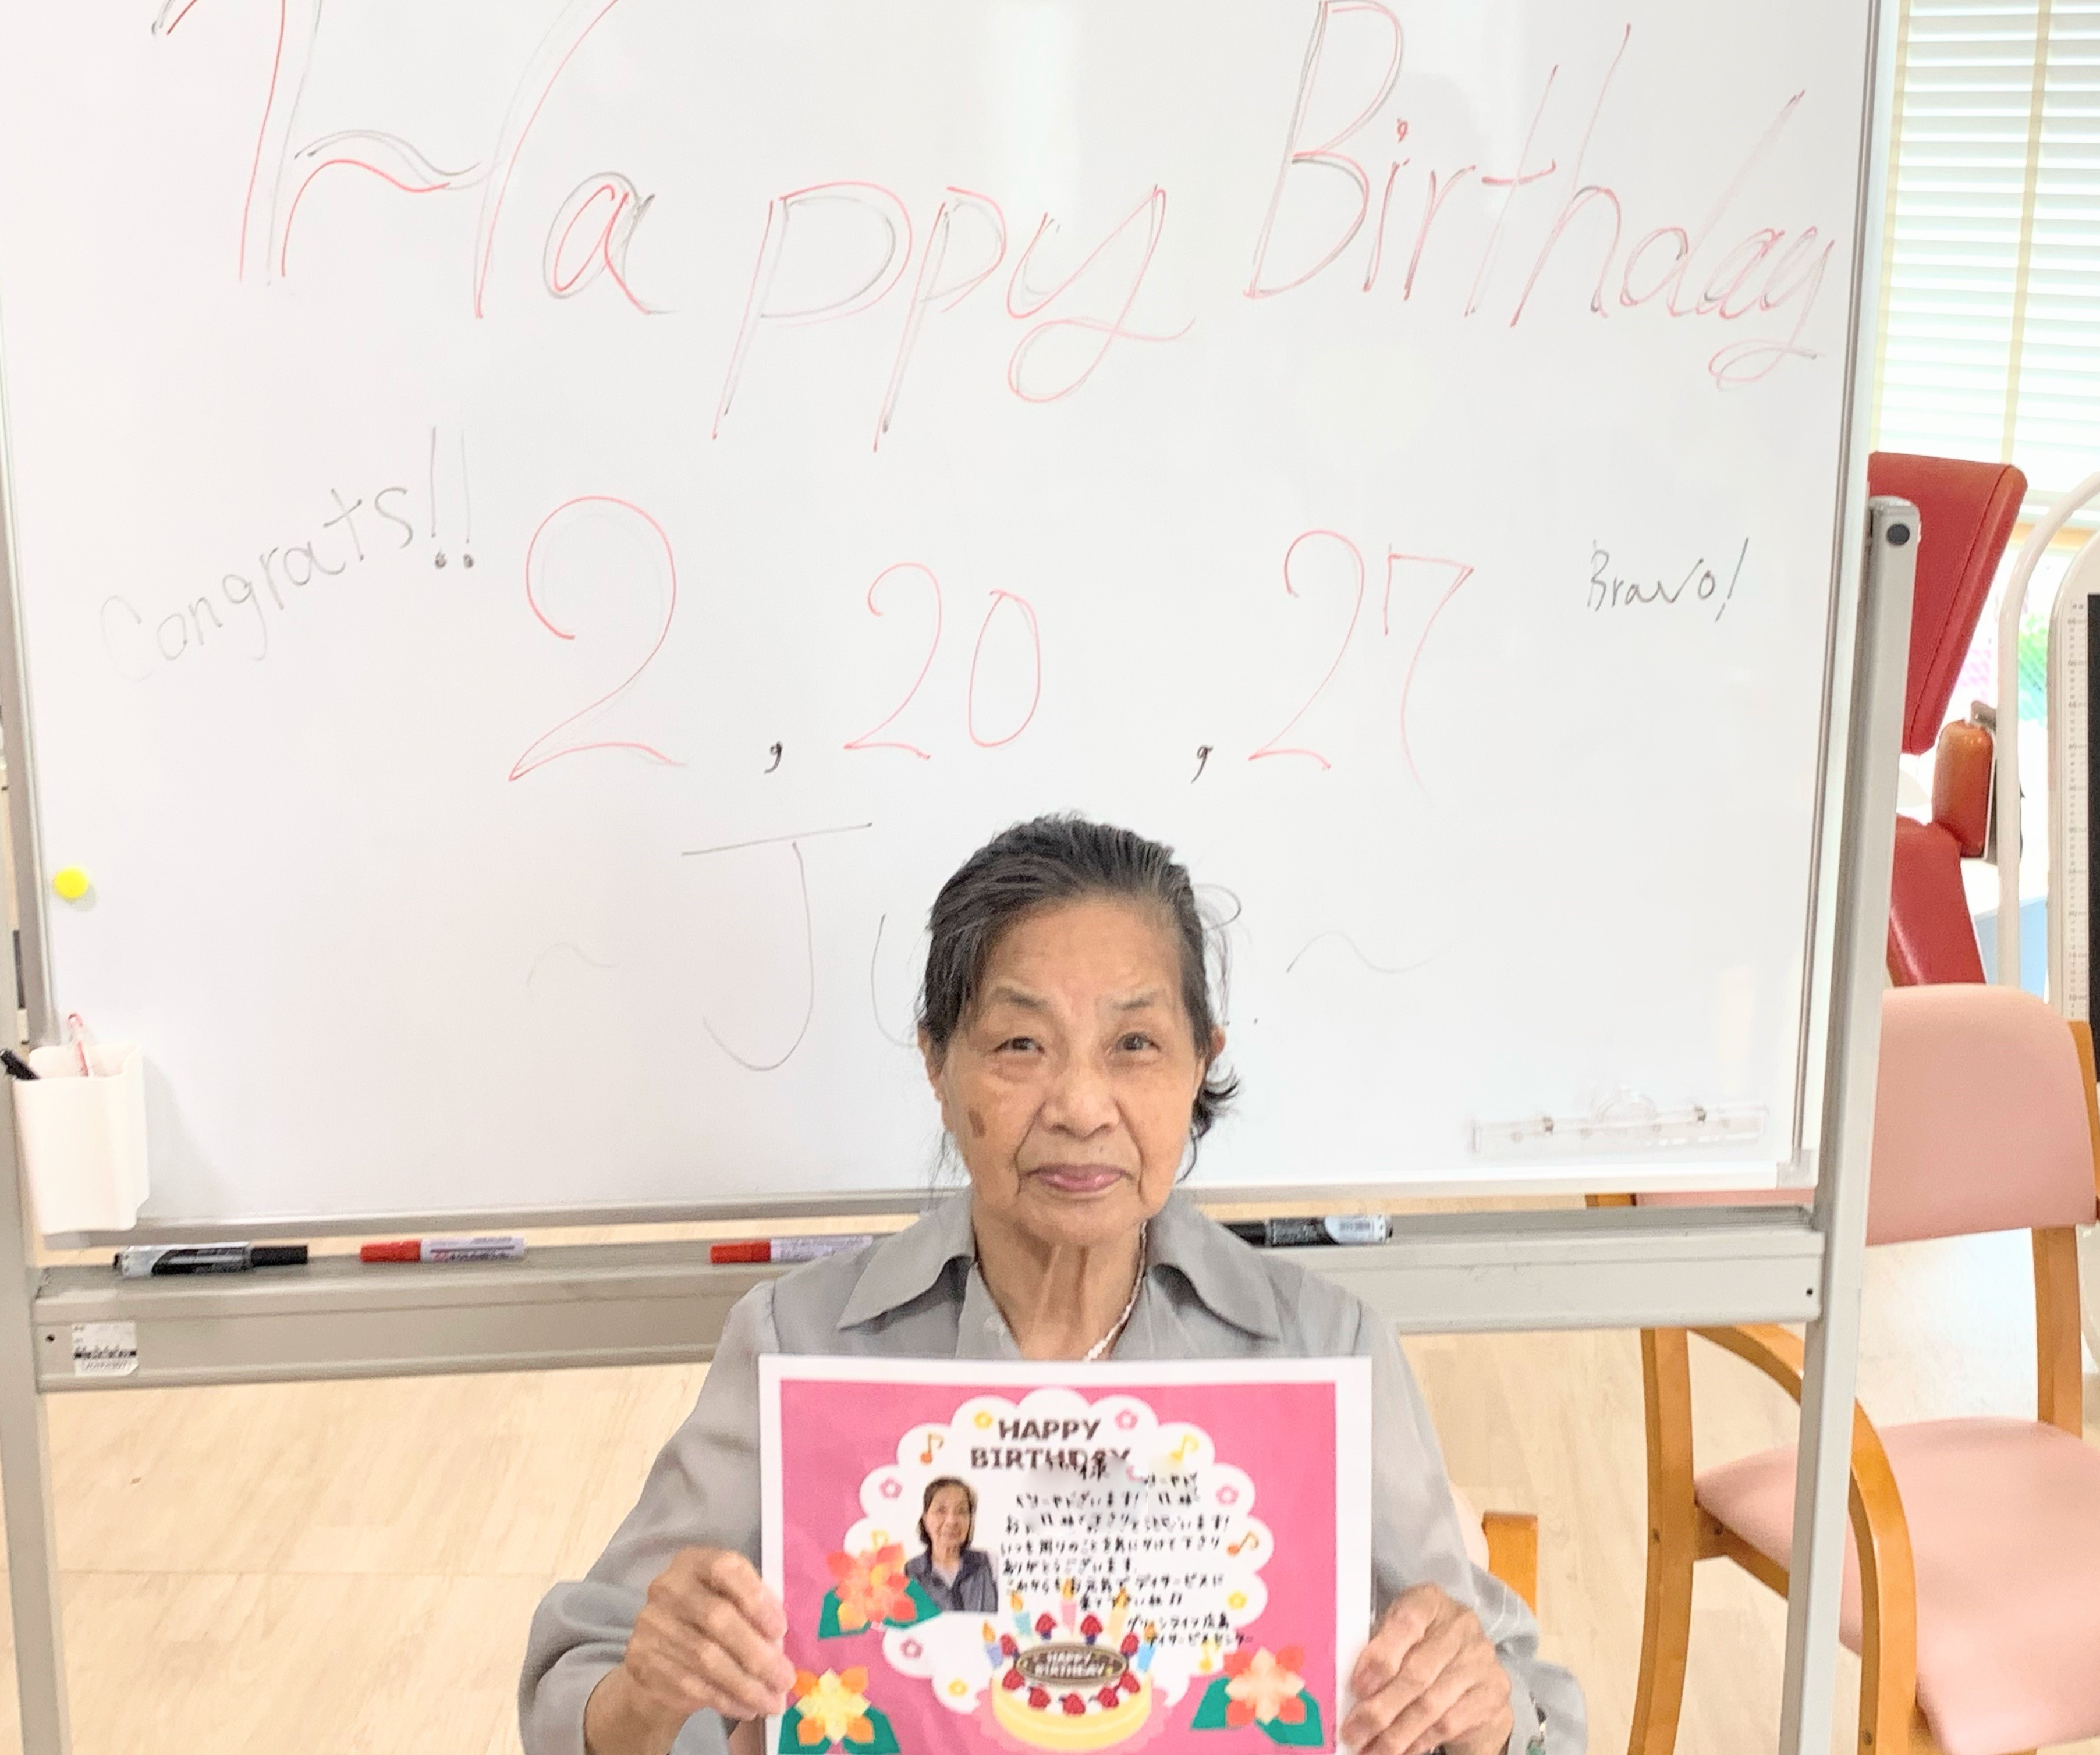 Happy Birthday
Congrats!!
2, 20, 27
Bravo!
HAPPY
BIRTHDAY
様
います!
います!
いつも周りのことを気にかけて下さり
ありがとうございます。
これからもお元気でデイサービスに
来て下さいね!!
グリーンライフ広島
デイサービスセンター
HAPPY
BIRTHDAY